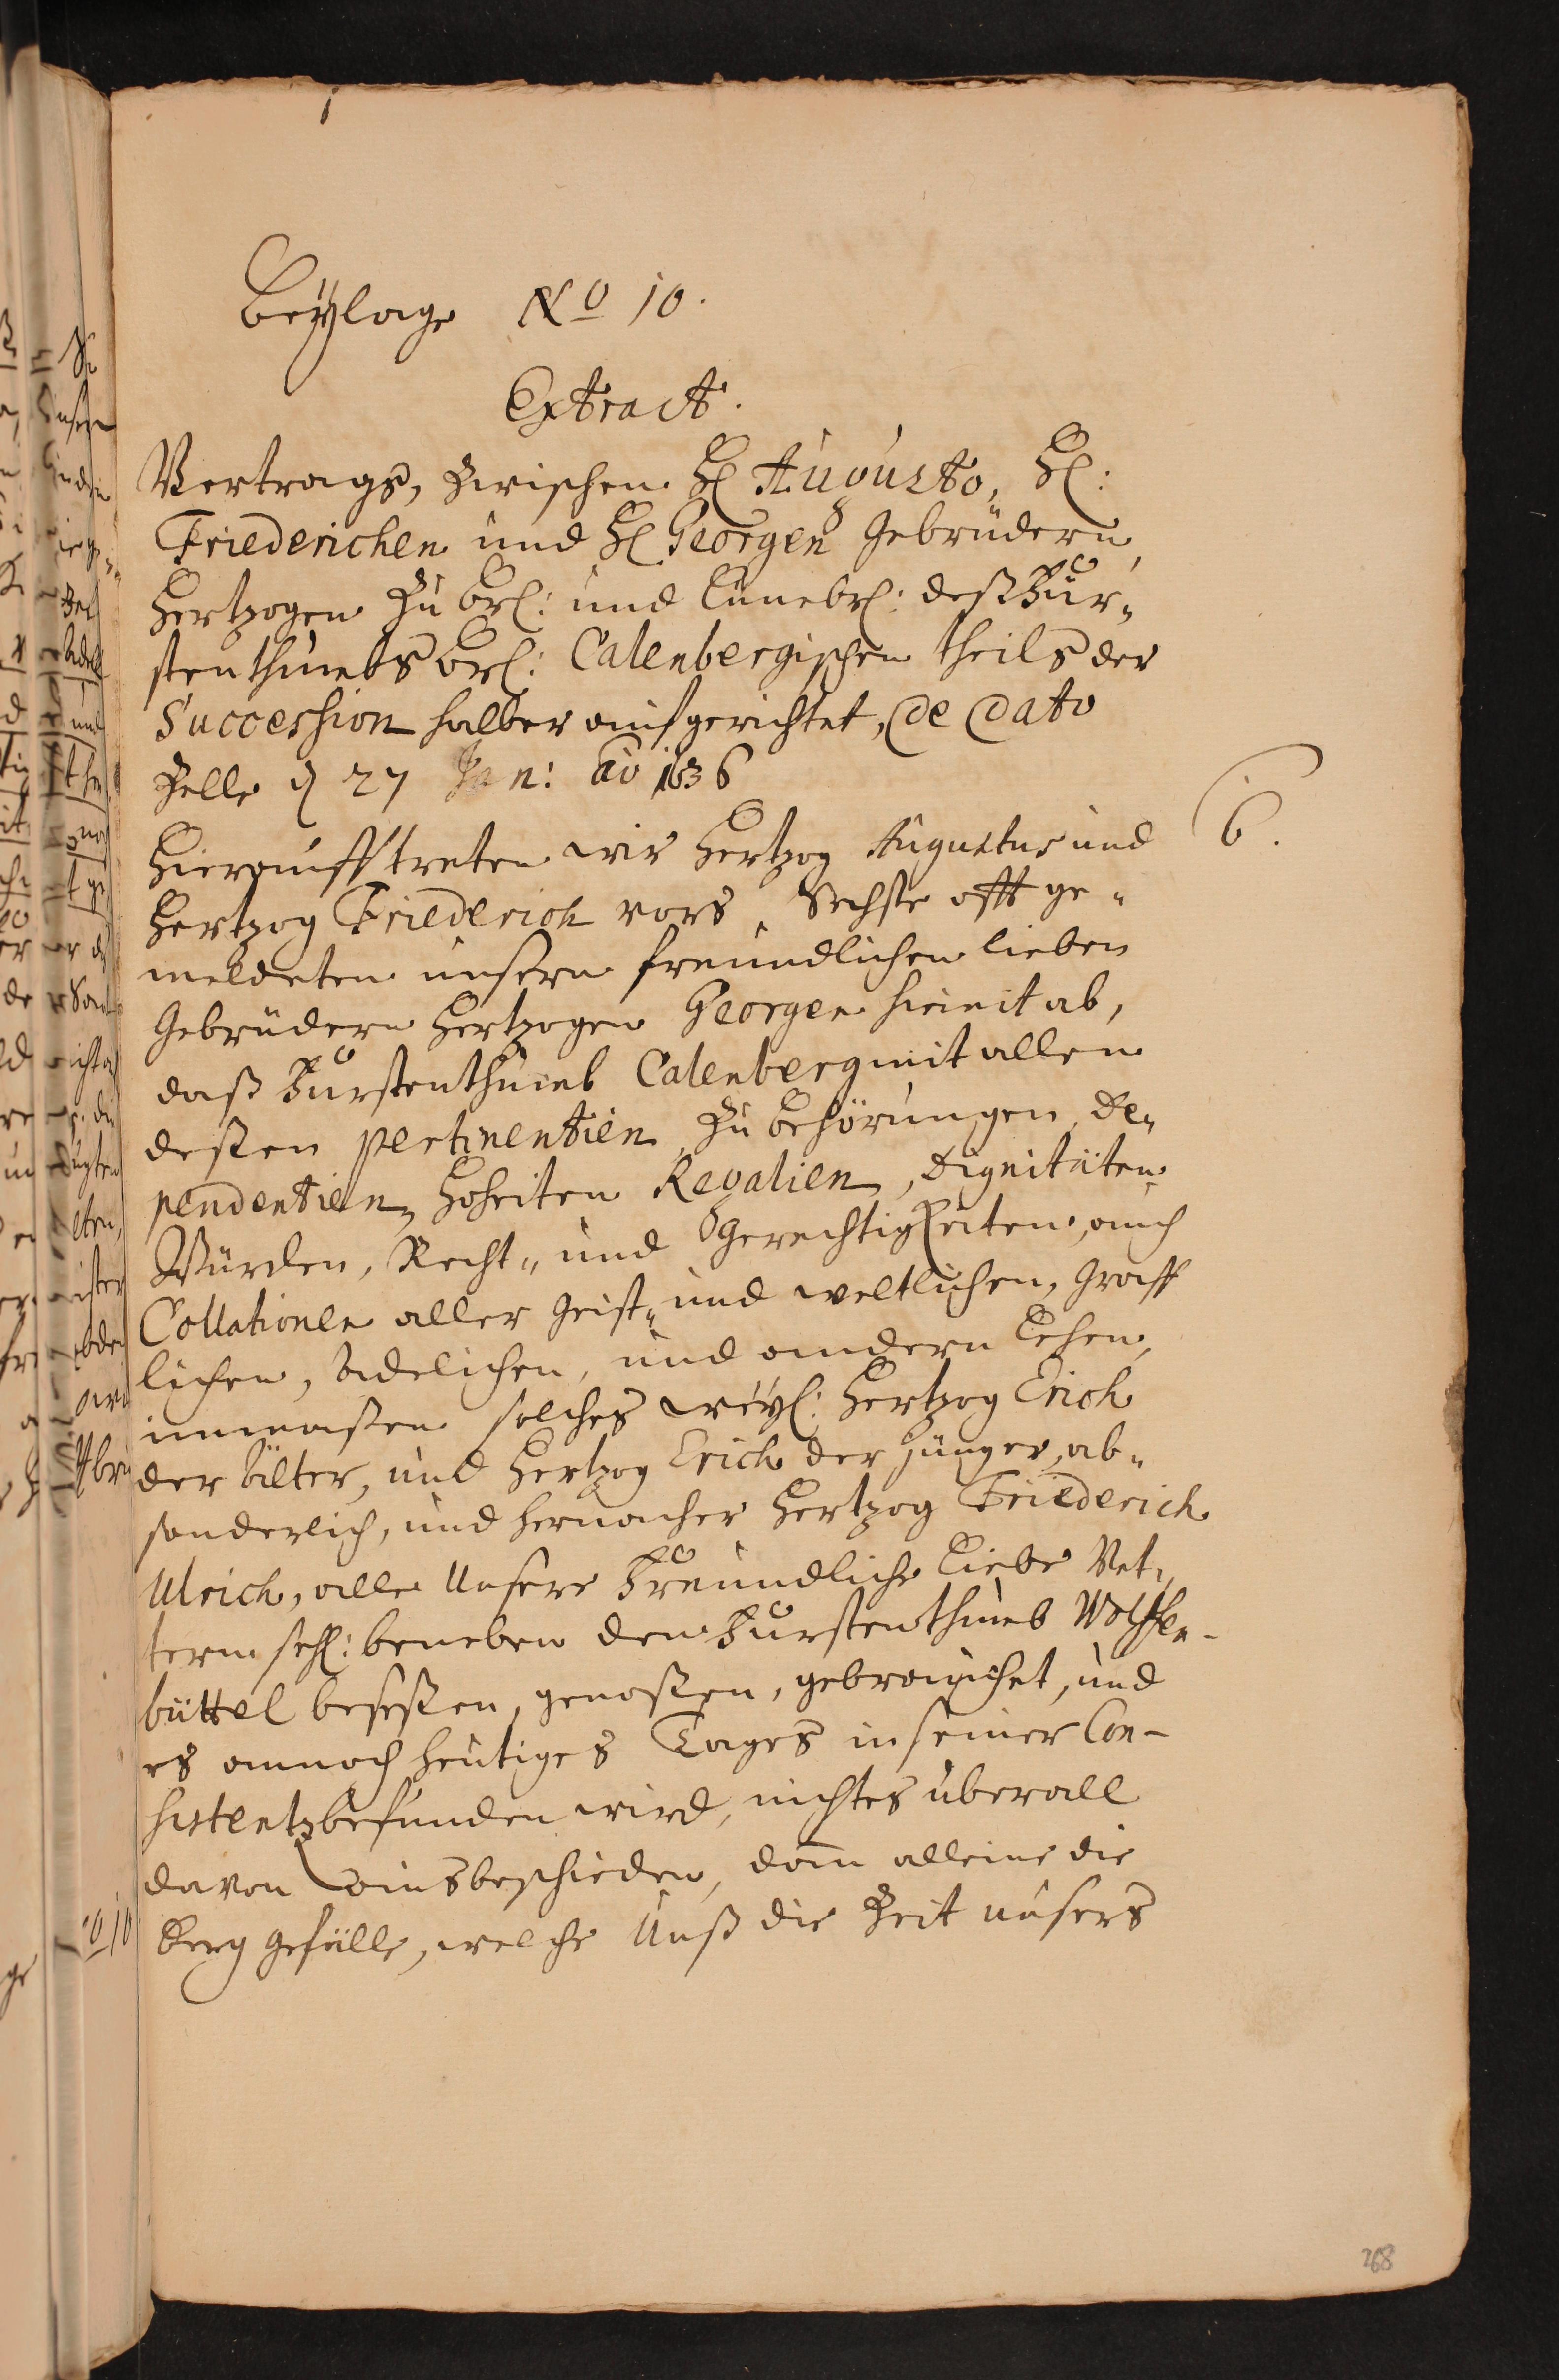 Beylage No 10.
Extract.
Vertrags, zwischen H. Augusto, H:
Friederichen und H. Georgen Gebrüdern,
Hertzogen zu Br: und Lünebr: deß Für„
stenthumbs Br: Calenbergischen theils der
Succession halber aufgerichtet, de dato
Zelle d 27 Jan: Ao 1636
Hierauff tretten wir Hertzog Augustus und
6.
Hertzog Friederich vors Sechste offt ge„
meldeten unsern freundlichen lieben
Gebrüdern Hertzogen Georgen hiemit ab,
daß Fürstenthumb Calenberg mit allen
deßen pertinentien, Zubehörungen, De„
pendentien, Hoheiten Regalien, Dignitäten
Würden, Recht„ und Gerechtigkeiten, auch
Collationen aller Geist„ und weltlichen, Gräff
lichen, Adelichen, und andern Lehen,
immaßen solches weyl: Hertzog Erich
der Älter, und Hertzog Erich der Jünger, ab„
sonderlich, und hernacher Hertzog Friederich
Ulrich, alle Unsere Freundliche Liebe Vet„
tern sehl: beneben den Fürstenthumb Wolffen-
büttel beseßen, genoßen, gebrauchet, und
es annoch heutiges Tages in seiner Con-
sistentz befunden wird, nichtes überall
davon ausbeschieden, dann alleine die
Berg gefälle, welche Unß die Zeit unsers
268